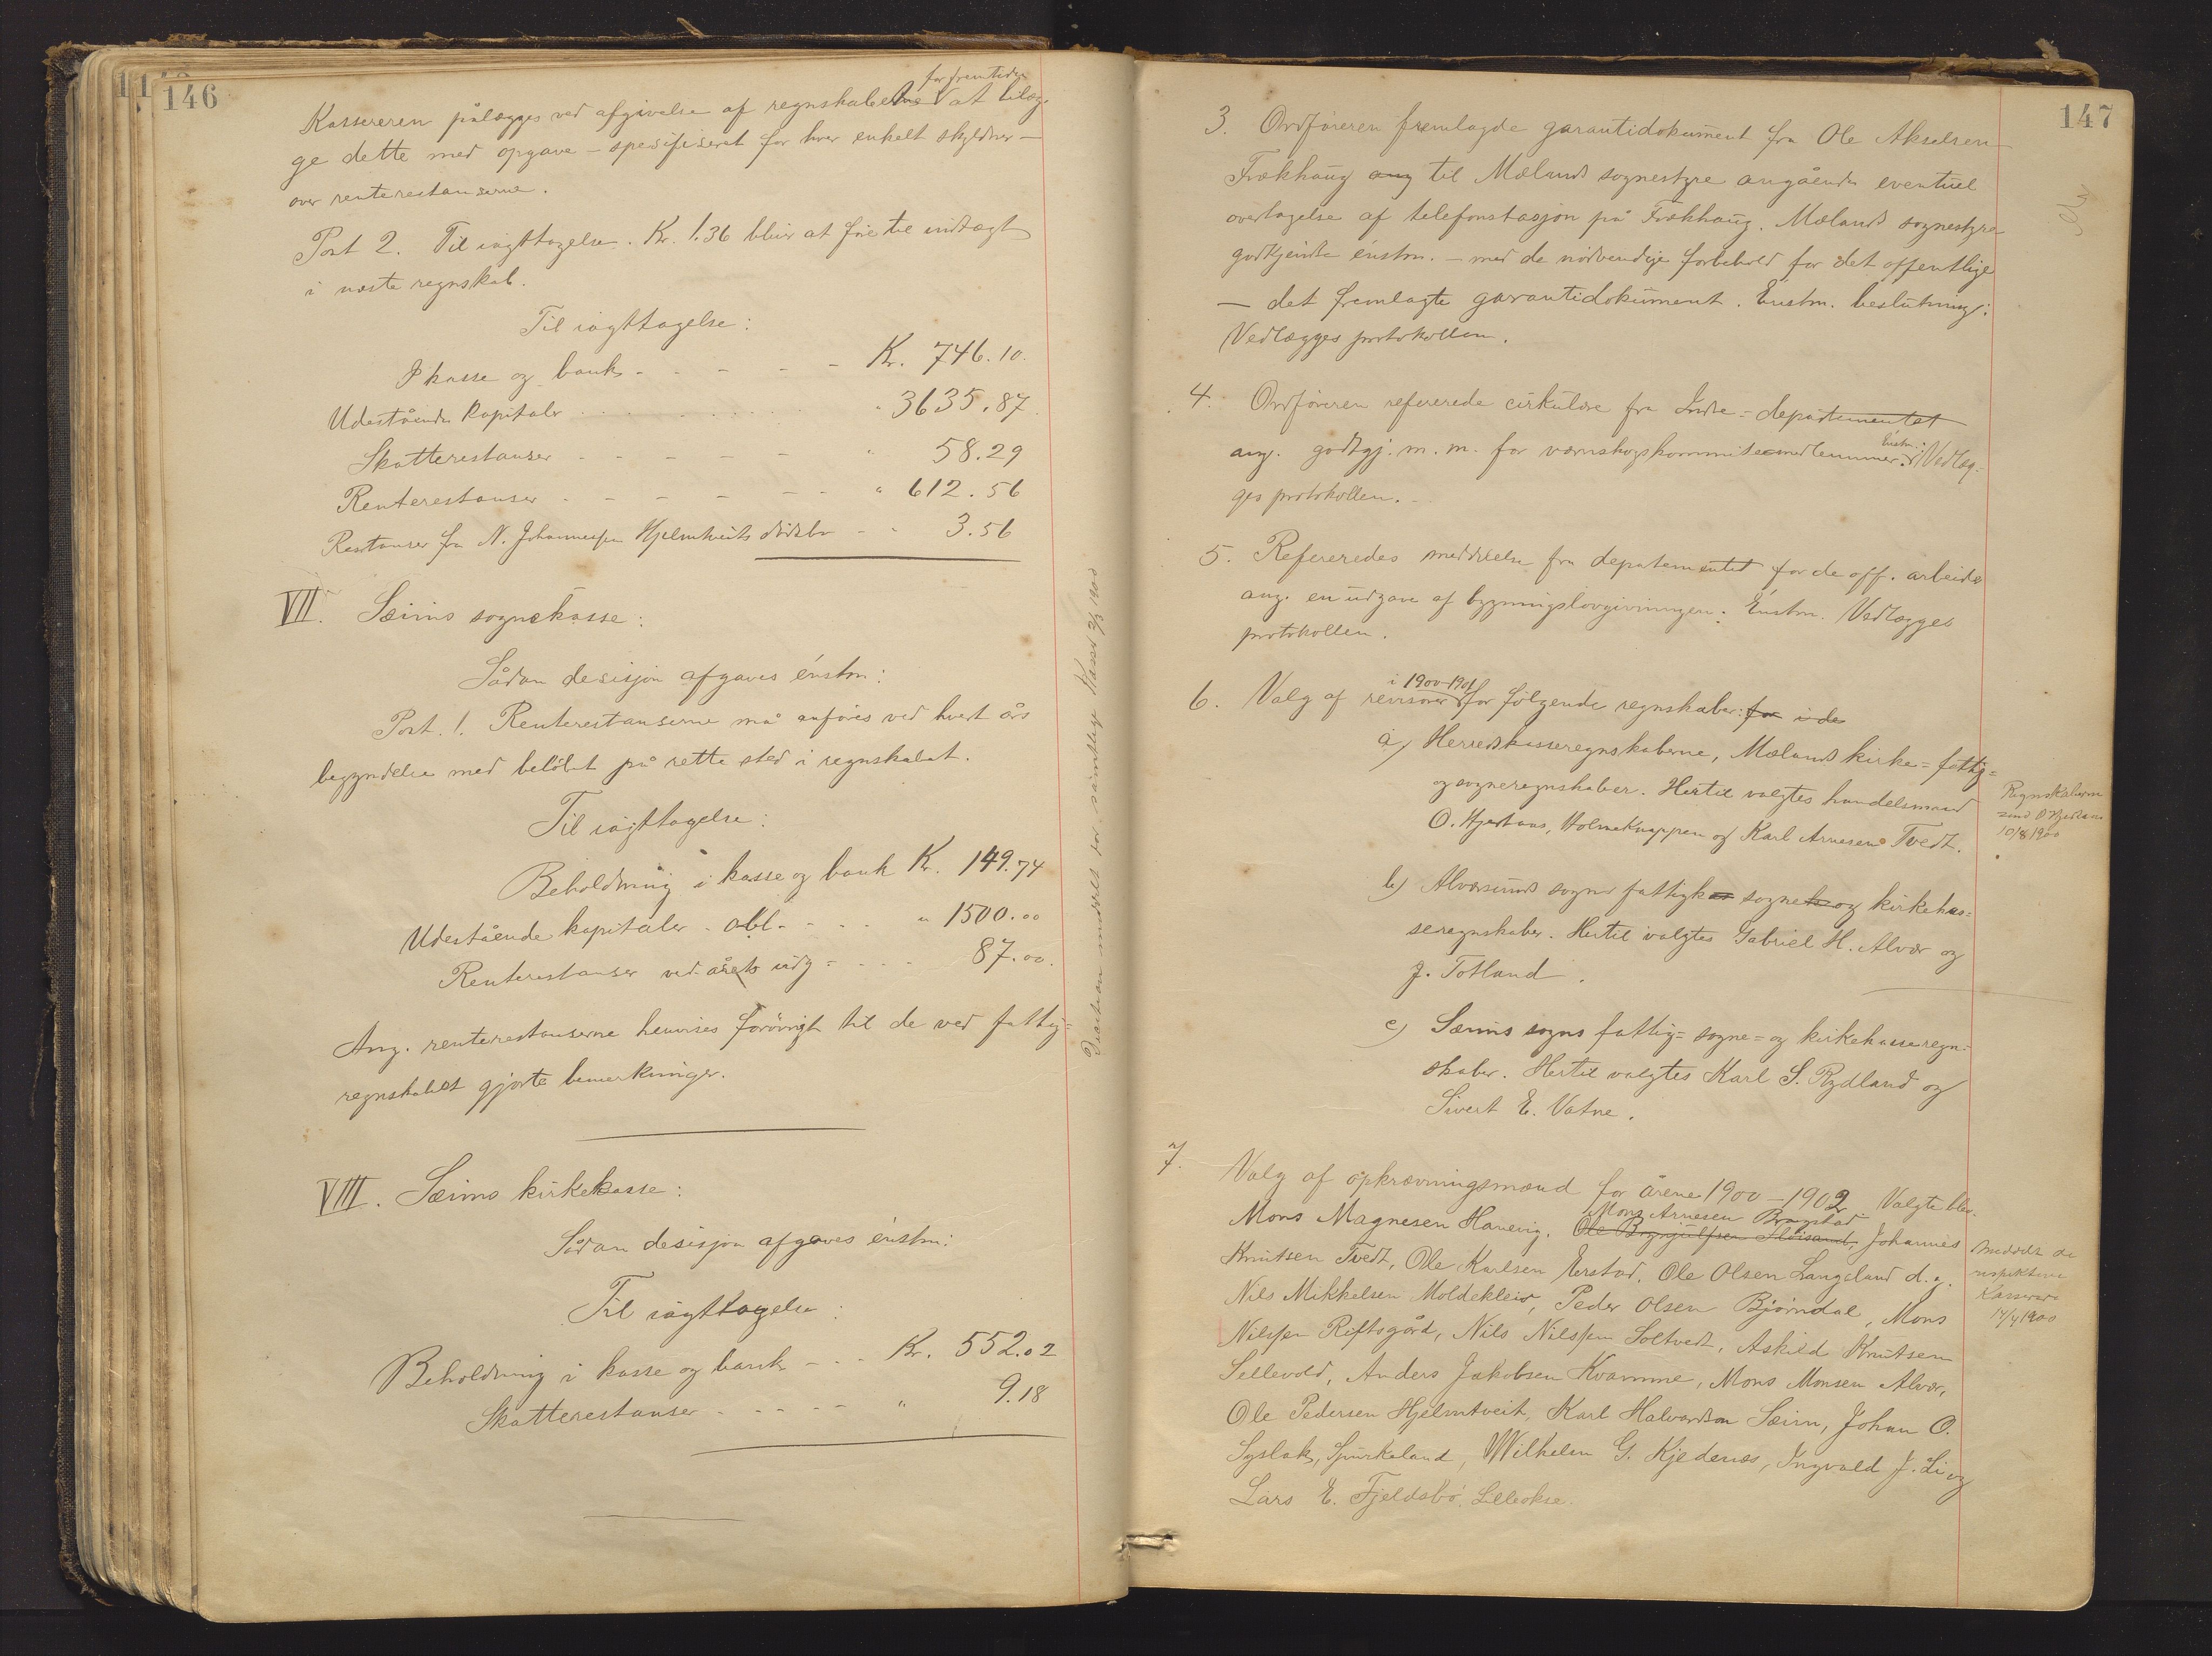 146
for fremtiden
Kassereren pålægges ved afgivelse af regnskaberne at tilæg-
ge dette med opgave – spesifiseret for hver enkelt skyldner –
over renterestanserne.
Post 2. Til iagttagelse. Kr. 1.36 blir at føre til indtægt
i næste regnskab.
Til iagttagelse:
I kasse og bank - - - - - Kr. 746.10.
Udestående kapitaler - - - - - " 3635.87
Skatterestanser - - - - - " 58.29
Renterestanser - - - - - - " 612.56
Restanser fra N. Johannessen Hjelmtveits dødsbo - - 3.56
VII. Sæims sognekasse:
Sådan desisjon afgaves énstm:
Post. 1. Renterestanserne må anføres ved hvert års
begyndelse med beløbet på rette sted i regnskabet.
Til iagttagelse:
Beholdning i kasse og bank Kr. 149.74
Udestående kapitaler - obl. - - - " 1500.00
Renterestanser ved årets udg - - - - 87.00.
Ang. renterestanserne henvises forøvrigt til de ved fattig-
regnskabet gjorte bemerkninger.
VIII. Sæims kirkekasse:
Sådan desisjon afgaves énstm:
Til iagttagelse:
Beholdning i kasse og bank - - - Kr. 552.02
Skatterestanser - - - - - " 9.18
Desision meddelt for samtlige Kasser 2/3 1900
147
3. Ordføreren fremlagde garantidokument fra Ole Akselsen
Frækhaug ang til Mælands sognestyre angående eventuel
overtagelse af telefonstasjon på Frækhaug. Mælands sognestyre
godkjendte énstm. – med de nødvendige forbehold for det offentlige
– det fremlagte garantidokument. Énstm. beslutning:
Vedlægges protokollen.
4. Ordføreren refererede cirkulære fra Indre-departementet
ang. godtgj. m. m. for værnskogskommitemedlemmer. Énstm.: Vedlæg-
ges protokollen. –
5. Refereredes meddelelse fra departementet for de off. arbeider
ang. en udgave af bygningslovgivningen. Énstm. Vedlægges
protokollen.
i 1900-1901
6. Valg af revisorer for følgende regnskaber: for i de
a) Herredskasseregnskaberne, Mælands kirke- fattig-
og sogneregnskaber. Hertil valgtes handelsmand
O. Hjertaas, Holmeknappen og Karl Arnesen Tvedt.
Regnskaberne
send O Hjertaas
10/8 1900
b) Alversunds sogns fattigk sogne og kirkekas-
seregnskaber. Hertil valgtes Gabriel H. Alver og
J. Totland.
c) Sæims sogns fattig- sogne- og kirkekasseregn-
skaber. Hertil valgtes Karl S. Rydland og
Sivert E. Vatne.
7. Valg af opkrævningsmænd for årene 1900–1902. Valgte blev.
Mons Arnesen Bragstad
Mons Magnesen Hanevig. Ole Brynjulfsen Isdisand, Johannes
Knutsen Tvedt, Ole Karlsen Erstad, Ole Olsen Langeland d.y.
Nils Mikkelsen Moldekleiv, Peder Olsen Bjørndal, Mons
Nilssen Riftsgård, Nils Nilssen Soltvedt, Askild Knutsen
Sellevold, Anders Jakobsen Kvamme, Mons Monsen Alver,
Ole Pedersen Hjelmtveit, Karl Halvordsen Sæim, Johan O.
Syslak, Spurkeland, Wilhelm G. Kjedenes, Ingvald J. Li og
Lars E. Fjeldsbø, Lilleokse.
Meddelt de
respektive
Kasserere
14/4 1900